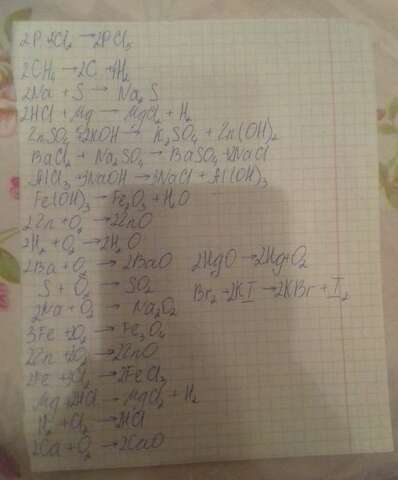 2P+5Cl₂ → 2PCl₅
2CH₄ → 2C + 4H₂
2Na + S → Na₂S
2HCl + Mg → MgCl₂ + H₂
ZnSO₄ + 2KOH → K₂SO₄ + Zn(OH)₂
BaCl₂ + Na₂SO₄ → BaSO₄ + 2NaCl
AlCl₃ + 3NaOH → 3NaCl + Al(OH)₃
Fe(OH)₃ → Fe₂O₃ + H₂O
2Zn + O₂ → 2ZnO
2H₂ + O₂ → 2H₂O
2Ba + O₂ → 2BaO 2HgO → 2Hg+O₂
S + O₂ → SO₂ Br₂ + 2KI → 2KBr + I₂
2Na + O₂ → Na₂O₂
3Fe + 2O₂ → Fe₃O₄
2Zn + O₂ → 2ZnO
2Fe + 3Cl₂ → 2FeCl₃
Mg + 2HCl → MgCl₂ + H₂
H₂ + Cl₂ → 2HCl
2Ca + O₂ → 2CaO